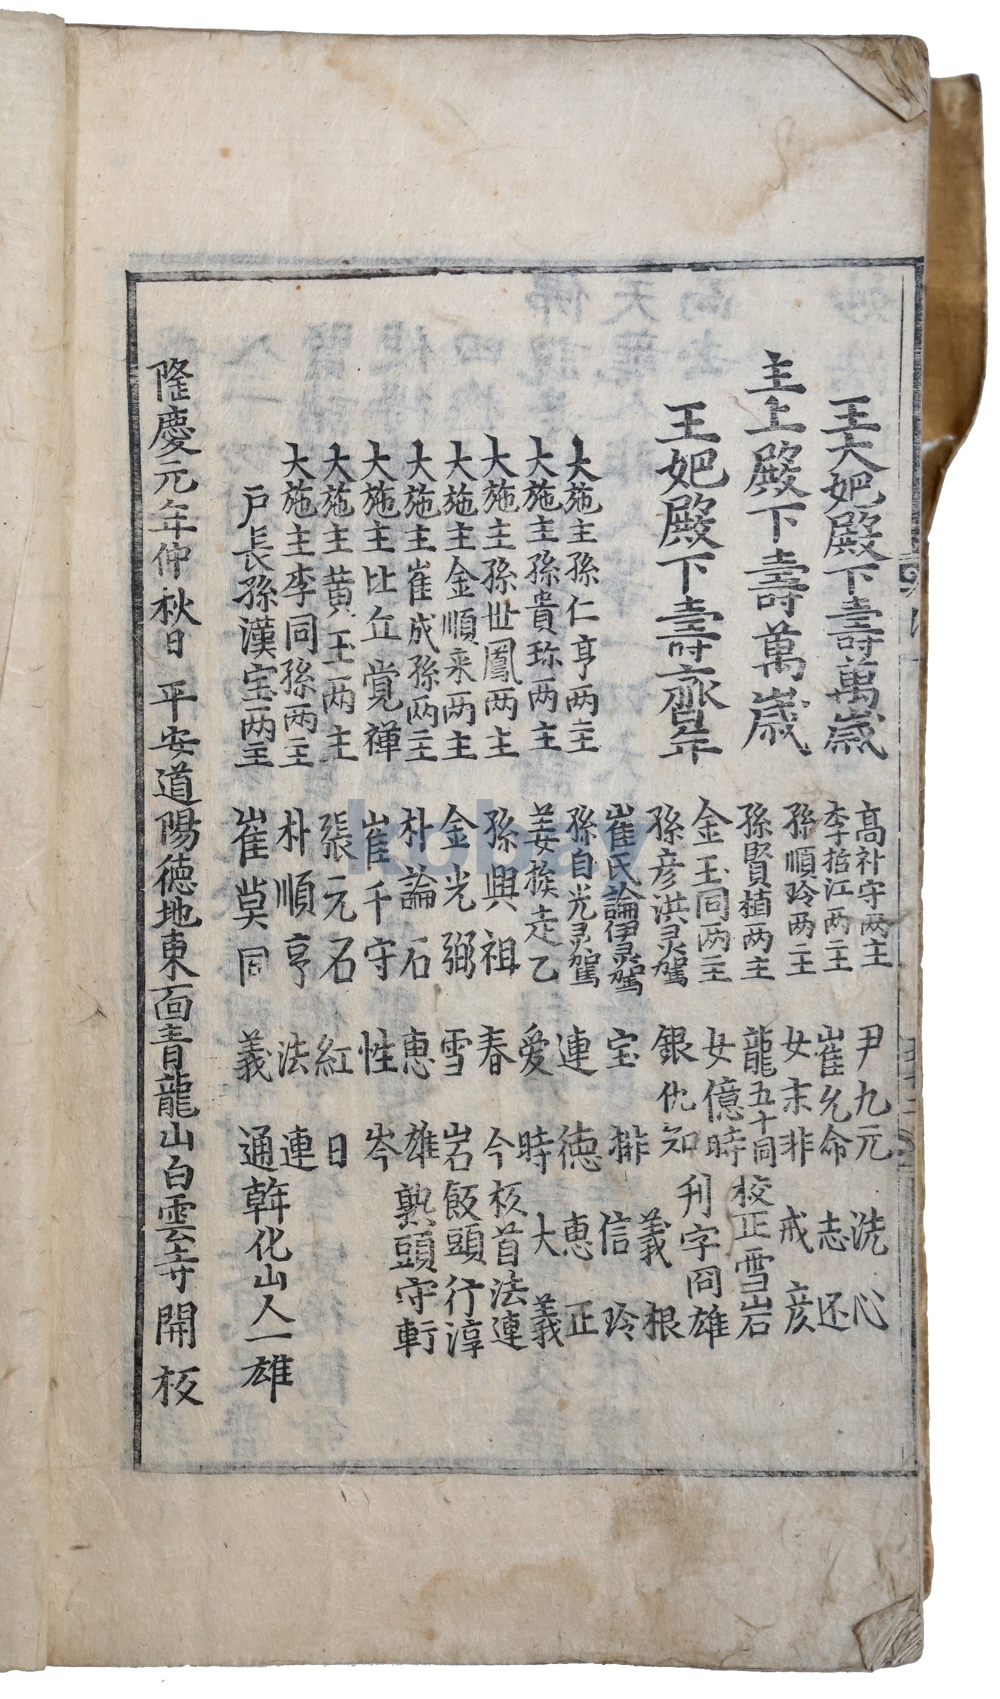 王大妃殿下壽萬歲
主上殿下壽萬歲
王妃殿下壽齊年
大施主孫仁亨两主
大施主孫貴珎两主
大施主孫世鳳两主
大施主金順乘两主
大施主崔成孫两主
大施主比丘覚禅
大施主黄玉两主
大施主李同孫两主
戸長孫漢宝两主
高補守两主
李哲江两主
孫順玲两主
孫賢植两主
金玉同两主
孫彦洪灵駕
崔氏論伊灵駕
孫自光灵駕
姜挨走乙
孫興祖
金光弼
朴論石
崔千守
張元石
朴順亨
崔莫同
尹九元
崔允命
女末非
龍五十同
女億時
銀化知
宝排
連德
愛時
春今
雪岩
惠雄
性岑
紅日
法連
義通
洗心
志还
戒彦
校正雪岩
刊字冏雄
義根
信玲
惠正
大義
板首法連
飯頭行淳
熟頭守軒
幹化山人一雄
隆慶元年仲秋日 平安道陽德地東面青龍山白雲寺開板
kobay